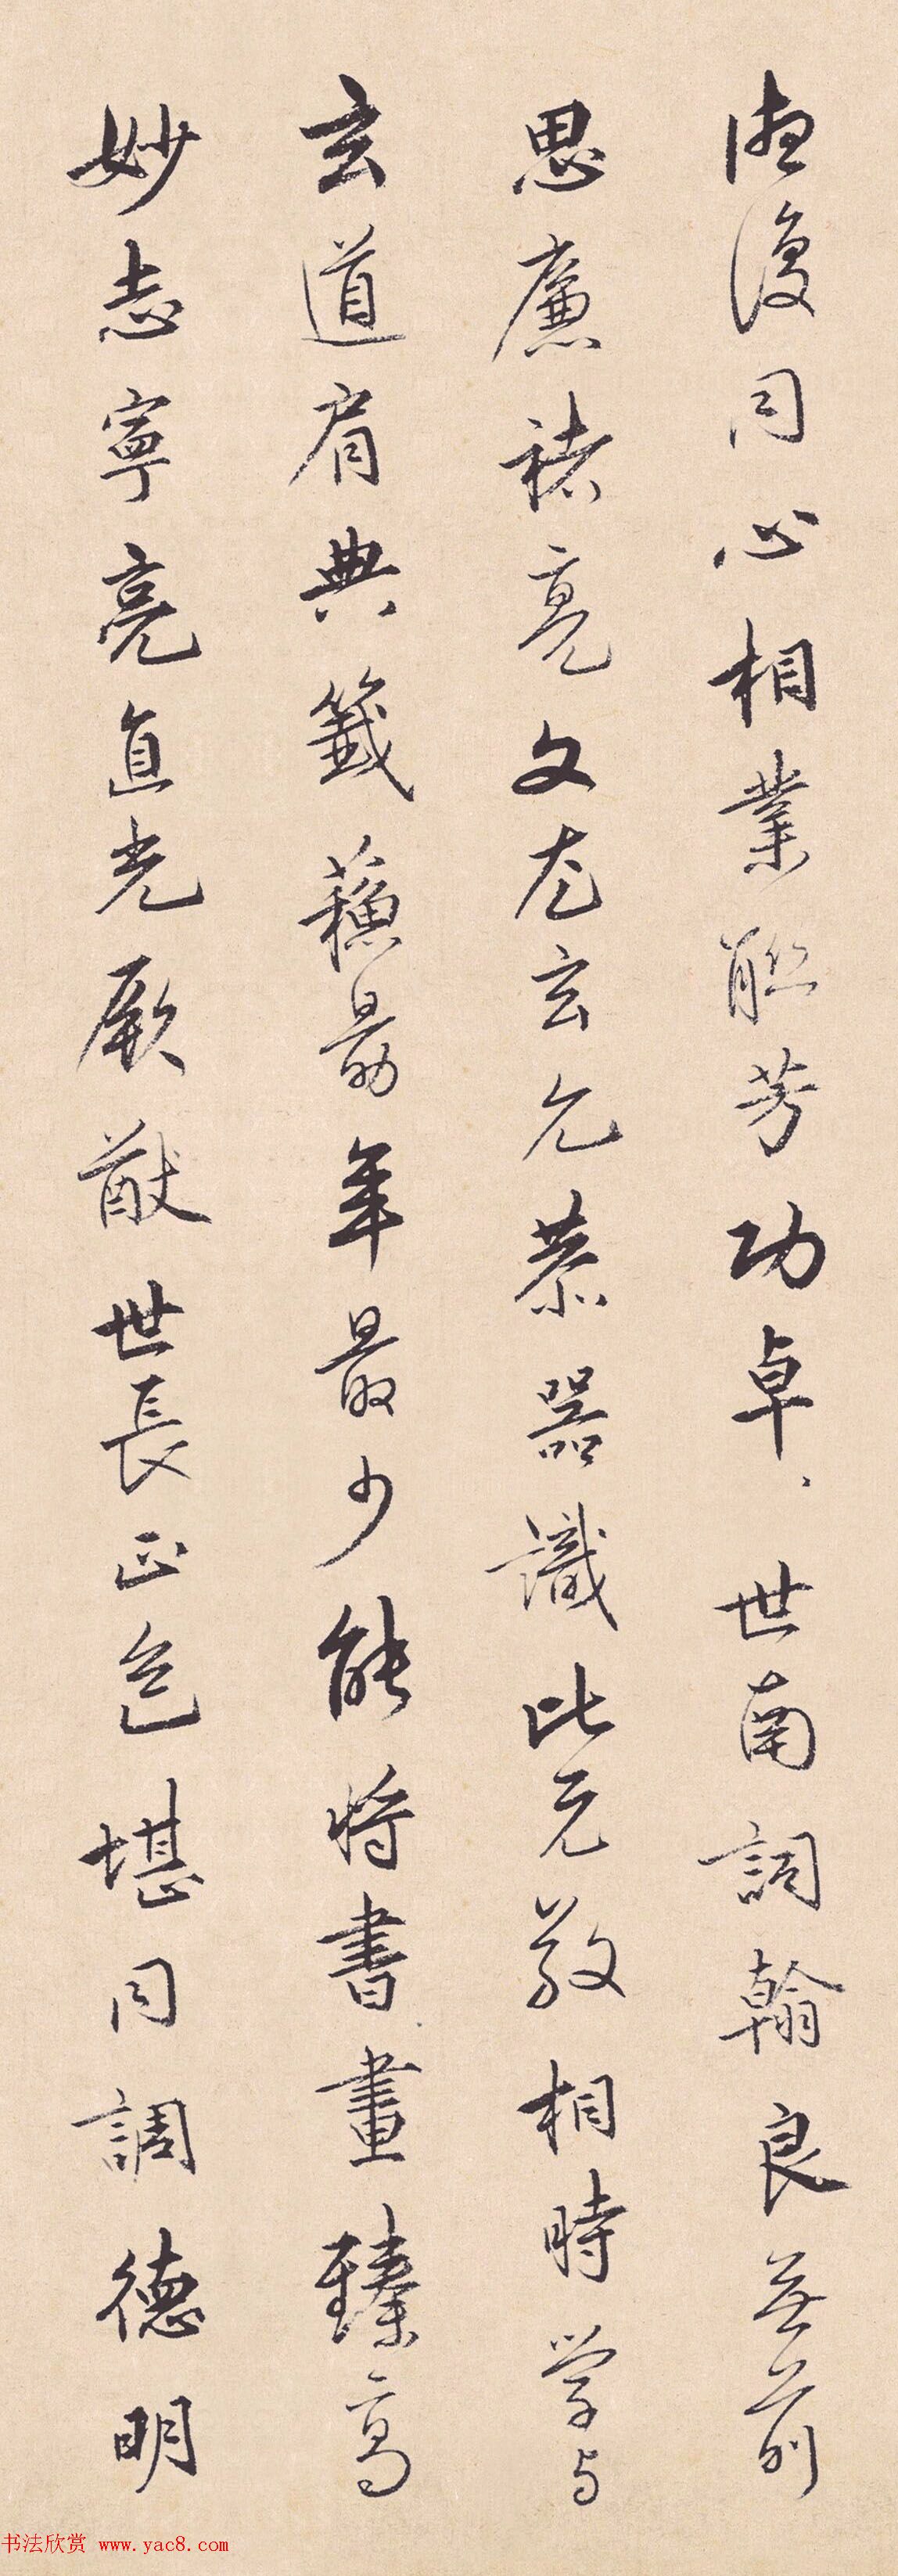 復同心相業聯芳功卓、世南詞翰良無前
思廉褚亮文尤玄允恭器識比元敬相時學与
玄道肩典籤蘇勗年最少能將書畫臻高
妙志寧亮直光厥猷世長正色堪同調德明
书法欣赏 www.yac8.com